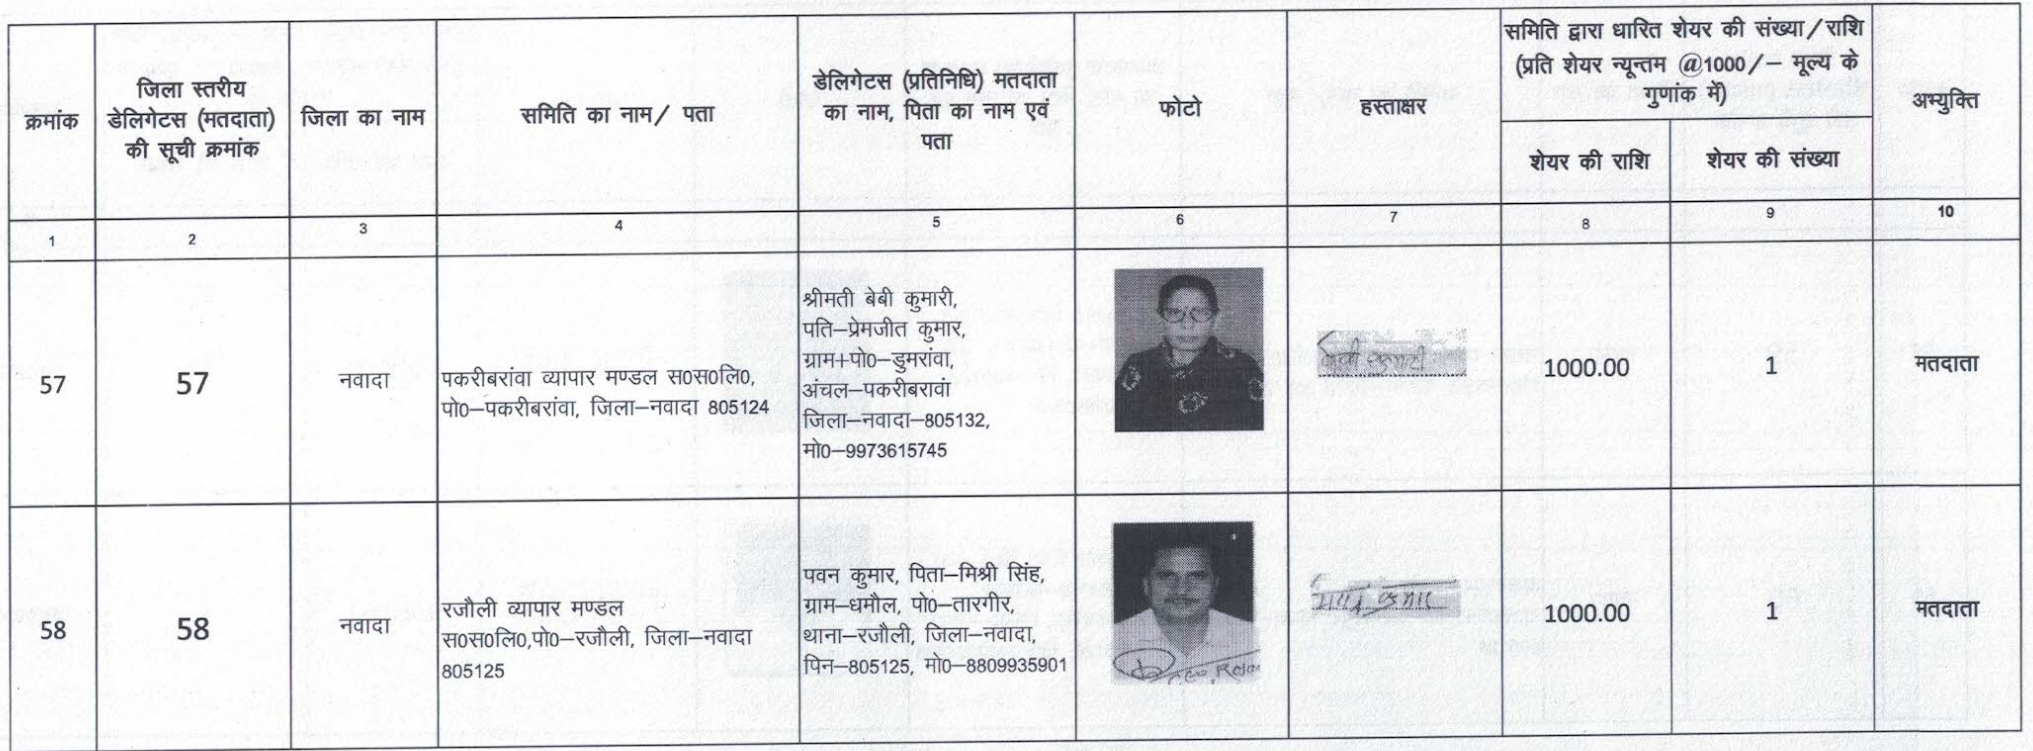 क्रमांक
जिला स्तरीय
डेलिगेटस (मतदाता)
की सूची क्रमांक
जिला का नाम
समिति का नाम/ पता
डेलिगेटस (प्रतिनिधि) मतदाता
का नाम, पिता का नाम एवं
पता
फोटो
हस्ताक्षर
समिति द्वारा धारित शेयर की संख्या/राशि
(प्रति शेयर न्यूनतम @1000/– मूल्य के
गुणांक में)
शेयर की राशि
शेयर की संख्या
अभ्युक्ति
1
2
3
4
5
6
7
8
9
10
57
57
नवादा
पकरीबरांवा व्यापार मण्डल स0स0लि0,
पो0–पकरीबरांवा, जिला–नवादा 805124
श्रीमती बेबी कुमारी,
पति–प्रेमजीत कुमार,
ग्राम+पो0–डुमरांवा,
अंचल–पकरीबरावां
जिला–नवादा–805132,
मो0–9973615745
बेबी कुमारी
1000.00
1
मतदाता
58
58
नवादा
रजौली व्यापार मण्डल
स0स0लि0,पो0–रजौली, जिला–नवादा
805125
पवन कुमार, पिता–मिश्री सिंह,
ग्राम–धमौल, पो0–तारगीर,
थाना–रजौली, जिला–नवादा,
पिन–805125, मो0–8809935901
पवन कुमार
1000.00
1
मतदाता